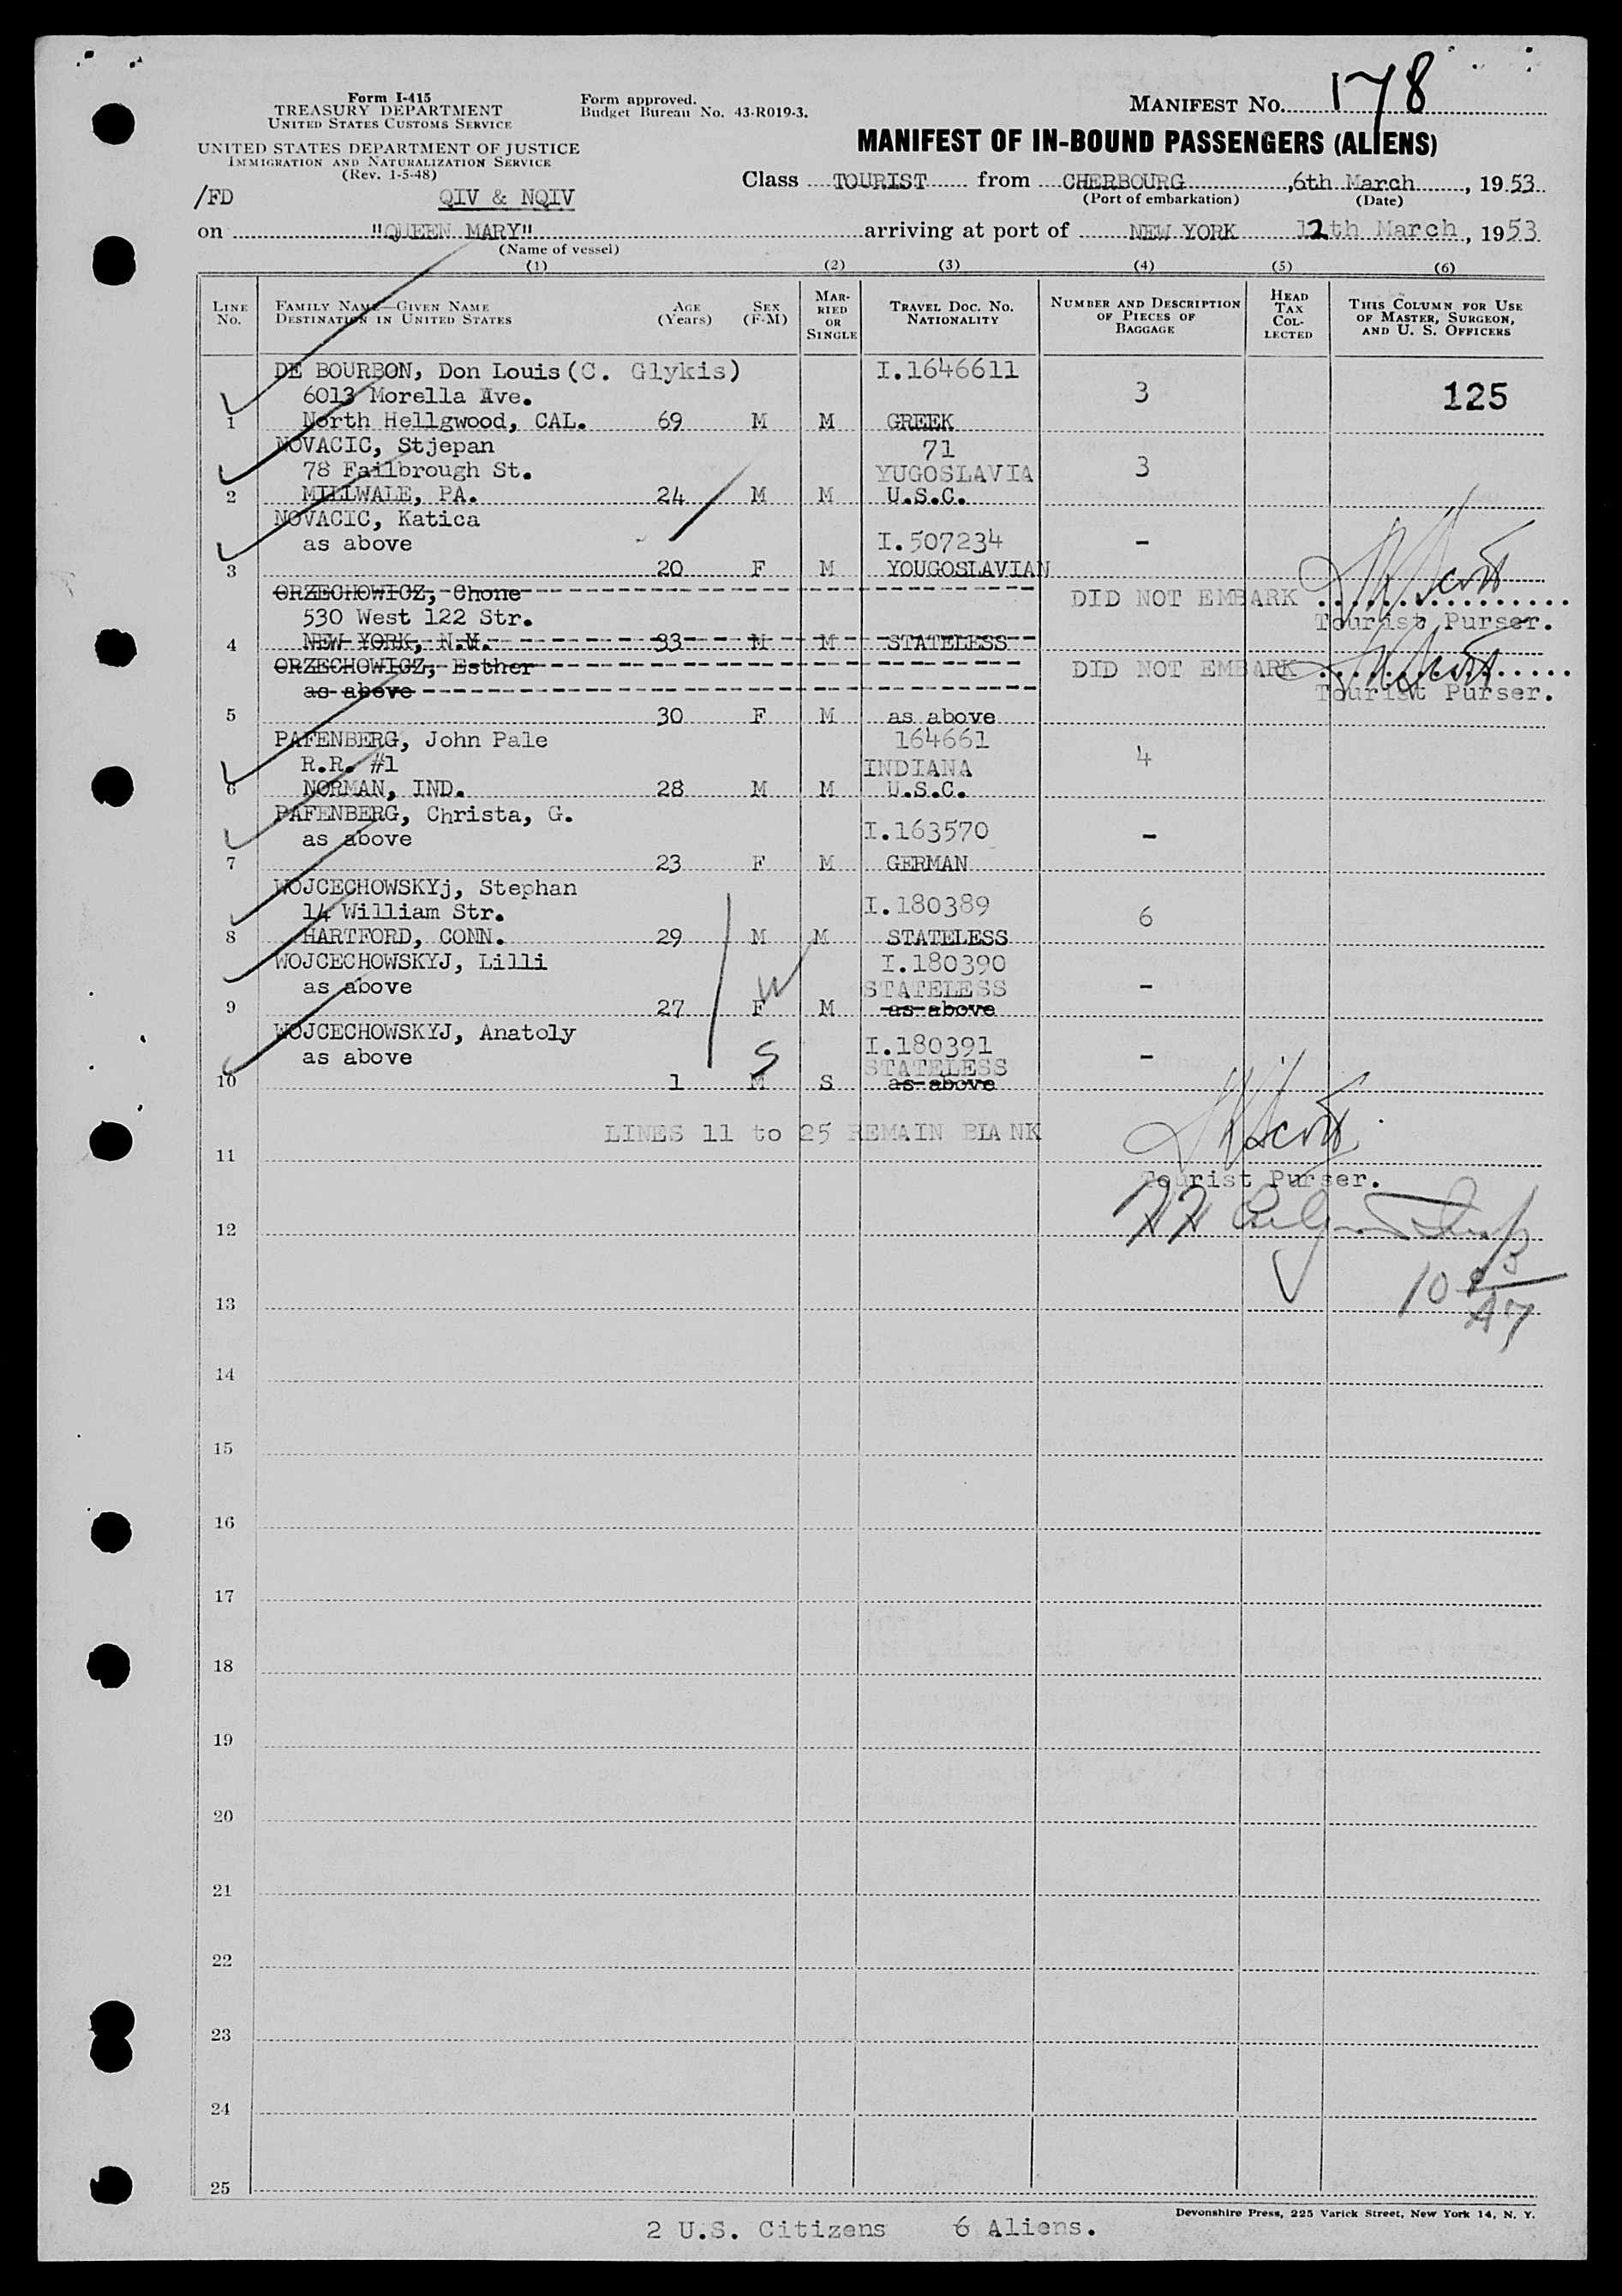 Form I-415
TREASURY DEPARTMENT
UNITED STATES CUSTOMS SERVICE
UNITED STATES DEPARTMENT OF JUSTICE
IMMIGRATION AND NATURALIZATION SERVICE
(Rev. 1-5-48)
Form approved.
Budget Bureau No. 43-R019-3.
MANIFEST NO. 178
MANIFEST OF IN-BOUND PASSENGERS (ALIENS)
/FD QIV & NQIV
Class TOURIST from CHERBOURG, 6th March, 1953
(Port of embarkation) (Date)
on "QUEEN MARY" arriving at port of NEW YORK 12th March, 1953
(Name of vessel)
(1) (2) (3) (4) (5) (6)
LINE No. FAMILY NAME—GIVEN NAME DESTINATION IN UNITED STATES AGE (Years) SEX (F-M) MARRIED OR SINGLE TRAVEL DOC. NO. NATIONALITY NUMBER AND DESCRIPTION OF PIECES OF BAGGAGE HEAD TAX COLLECTED THIS COLUMN FOR USE OF MASTER, SURGEON, AND U. S. OFFICERS
DE BOURBON, Don Louis (C. Glykis) I.1646611
6013 Morella Ave. 3 125
1 North Hellgwood, CAL. 69 M M GREEK
NOVACIC, Stjepan 71
78 Failbrough St. YUGOSLAVIA 3
2 MILLWALE, PA. 24 M M U.S.C.
NOVACIC, Katica
as above I.507234 -
3 20 F M YOUGOSLAVIAN
ORZECHOWICZ, Chone DID NOT EMBARK
530 West 122 Str. Tourist Purser.
4 NEW YORK, N.Y. 33 M M STATELESS
ORZECHOWICZ, Esther DID NOT EMBARK
as above Tourist Purser.
5 30 F M as above
PAFENBERG, John Pale 164661
R.R. #1 INDIANA 4
6 NORMAN, IND. 28 M M U.S.C.
PAFENBERG, Christa, G.
as above I.163570 -
7 23 F M GERMAN
WOJCECHOWSKYj, Stephan
14 William Str. I.180389 6
8 HARTFORD, CONN. 29 M M STATELESS
WOJCECHOWSKYJ, Lilli I.180390
as above W STATELESS -
9 27 F M as above
WOJCECHOWSKYJ, Anatoly I.180391
as above S STATELESS -
10 1 M S as above
LINES 11 to 25 REMAIN BLANK
11
Tourist Purser.
12
13
14
15
16
17
18
19
20
21
22
23
24
25
Devonshire Press, 225 Varick Street, New York 14, N. Y.
2 U.S. Citizens 6 Aliens.